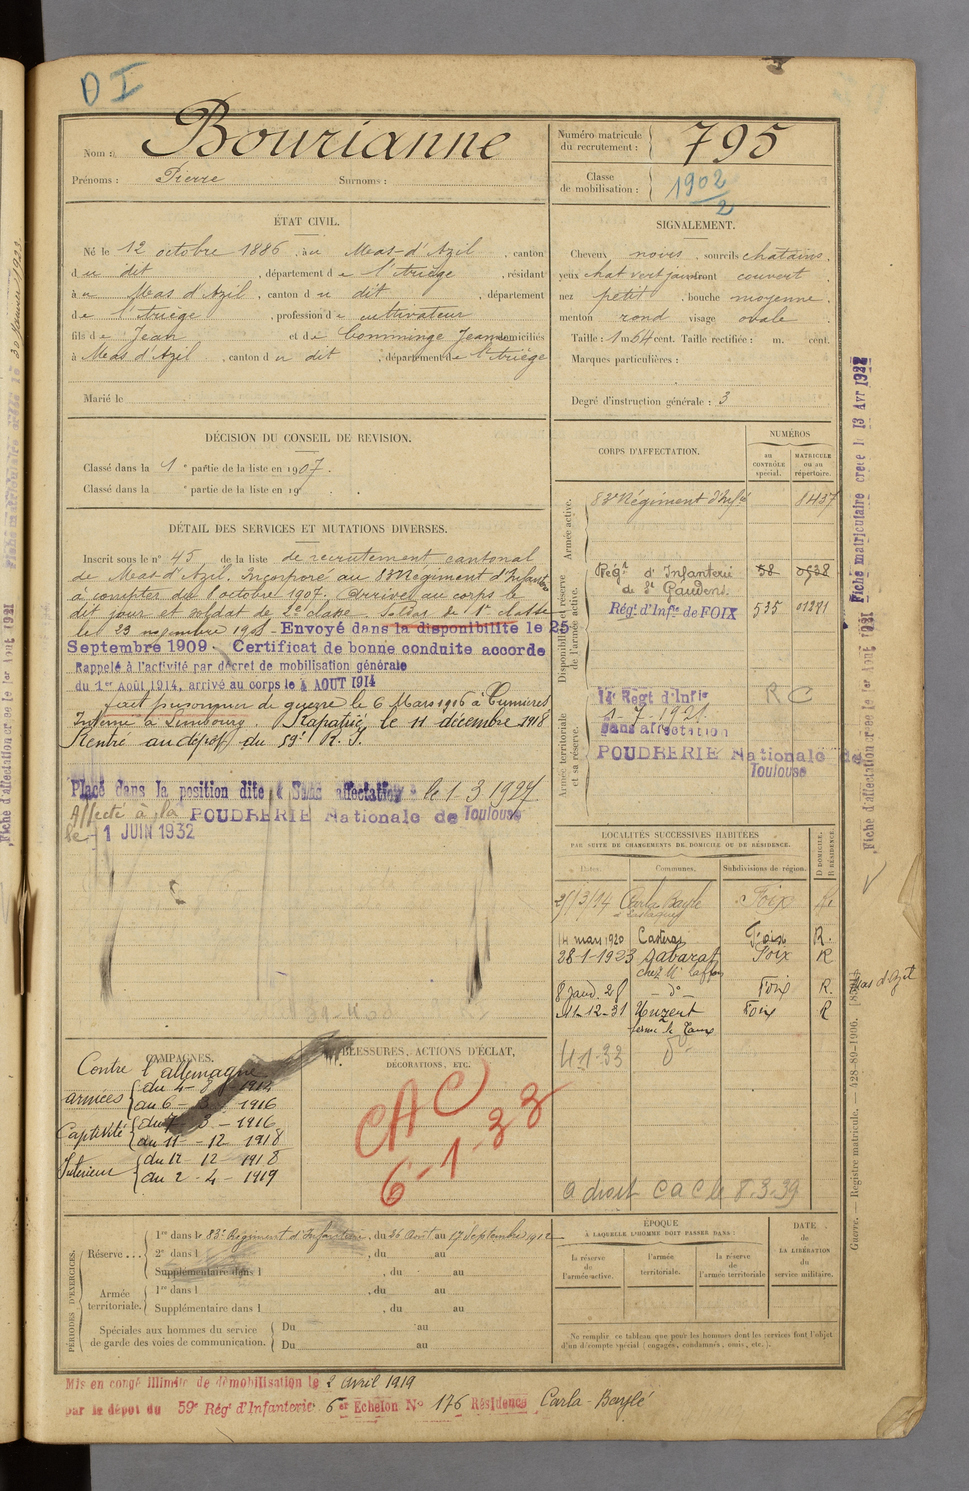 D I
Nom : Bourianne
Prénoms : Pierre Surnoms :
Numéro matricule du recrutement : 795
Classe de mobilisation : 1902/2
ÉTAT CIVIL.
Né le 12 octobre 1886, au Mas-d'Azil, canton
du dit, département de l'Ariège, résidant
à au Mas d'Azil, canton du dit, département
de l'Ariège, profession de cultivateur
fils de Jean et de Comminge Jeanne domiciliés
à Mas d'Azil, canton du dit, département de l'Ariège
Marié le
SIGNALEMENT.
Cheveux noirs, sourcils chatains,
yeux chat vert jau front couvert
nez petit, bouche moyenne,
menton rond visage ovale
Taille : 1 m 64 cent. Taille rectifiée : m. cent.
Marques particulières :
Degré d'instruction générale : 3
DÉCISION DU CONSEIL DE REVISION.
Classé dans la 1e partie de la liste en 1907.
Classé dans la e partie de la liste en 19 .
DÉTAIL DES SERVICES ET MUTATIONS DIVERSES.
Inscrit sous le n° 45 de la liste de recrutement cantonal
de Mas-d'Azil. Incorporé au 83e Régiment d'Infanterie
à compter du 8 octobre 1907. Arrivé au corps le
dit jour et soldat de 2e classe. Soldat de 1e classe
le 23 novembre 1908 - Envoyé dans la disponibilité le 25
Septembre 1909. Certificat de bonne conduite accordé
Rappelé à l'activité par décret de mobilisation générale
du 1er Août 1914, arrivé au corps le 4 AOUT 1914
fait prisonnier de guerre le 6 Mars 1916 à Cumières
Interné à Limbourg. Rapatrié le 11 décembre 1918
Rentré au dépôt du 59e R.I.
Placé dans la position dite « Sans affectation » le 1-3 1927
Affecté à la POUDRERIE Nationale de Toulouse
le 1 JUIN 1932
CORPS D'AFFECTATION.
NUMÉROS
au CONTRÔLE spécial.
MATRICULE ou au répertoire.
Armée active.
83e Régiment d'Infie 8437
Disponibilité et réserve de l'armée active.
Régt d'Infanterie de St Gaudens 58 0538
Régt d'Infie de FOIX 535 01281
Armée territoriale et sa réserve.
14e Regt d'Infie R C
1-7-1921
Sans affectation
POUDRERIE Nationale de
Toulouse
LOCALITÉS SUCCESSIVES HABITÉES
PAR SUITE DE CHANGEMENTS DE DOMICILE OU DE RÉSIDENCE.
Dates. Communes. Subdivisions de région. D DOMICILE. R RÉSIDENCE.
25/3/14 Carla Bayle Foix
14 mars 1920 Casteras Foix R.
28-1-1923 Sabarat Foix R
8 janv. 28 - do - Foix R. Mas d'Azil
11-12-31 Unzent Foix R
41-33
a droit C a C le 8.3.39
CAMPAGNES.
Contre l'allemagne
armées du 4-8-1914
au 6-3-1916
Captivité du 7-3-1916
au 11-12 1918
Intérieur du 12-12-1918
au 2-4-1919
BLESSURES, ACTIONS D'ÉCLAT,
DÉCORATIONS, ETC.
CAC
6-1-33
PÉRIODES D'EXERCICES.
Réserve... 1re dans le 83e Régiment d'Infanterie, du 26 Août au 17 Septembre 1912
2e dans l , du au
Supplémentaire dans l , du au
Armée territoriale. 1re dans l , du au
Supplémentaire dans l , du au
Spéciales aux hommes du service de garde des voies de communication. Du au
Du au
ÉPOQUE
À LAQUELLE L'HOMME DOIT PASSER DANS :
la réserve de l'armée active.
l'armée territoriale.
la réserve de l'armée territoriale
DATE de LA LIBÉRATION du service militaire.
Ne remplir ce tableau que pour les hommes dont les services font l'objet
d'un décompte spécial (engagés, condamnés, omis, etc.).
Mis en congé illimité de démobilisation le 2 avril 1919
par le dépôt du 59e Régt d'Infanterie 6er Echelon N° 176 Résidence Carla-Baylé
Fiche matriculaire créée le 13 Avr 1922
Fiche d'affectation créée le 1er Août 1921
Guerre. — Registre matricule. — 428-89-1906.